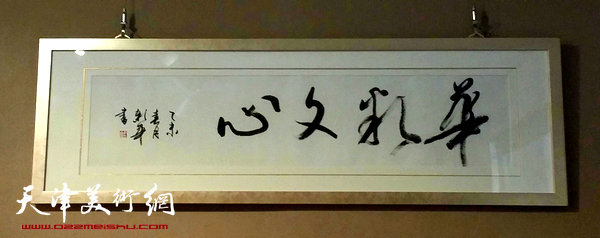 華彩文心
乙未
春月
彰華
書
天津美術網
www.022meishu.com